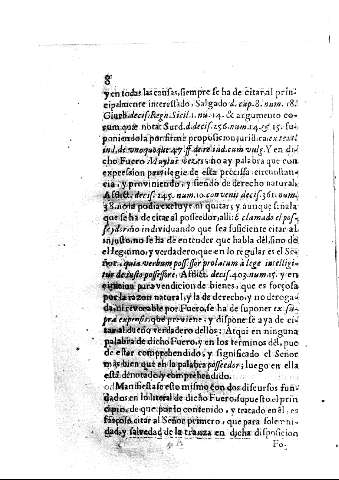 8
y en todas las causas, siempre se ha de citar al prin-
cipalmente interessado, Salgado d. cap. 8. num. 18.
Giurb decis. Regn. Sicil. 1. nu. 14. & argumento co-
mun que nota Surd. d. decis. 256. num. 14. 15. su-
poniendo la por firme proposicion juridica
ind. de vnoquoque 47. ff. de re iud. cum vulg. Y en di-
cho Fuero Muytas vezes no ay palabra que con
expression privilegie de esta precissa circunstan-
cia, y proviniendo, y siendo de derecho natural,
Afflict. decis. 245. num. 10. decis. 361. num.
38. no la podia excluyr ni quitar, y aunque señala
que se ha de citar al posseedor, alli: è clamado el pos-
seydor no individuando que sea suficiente citar al
injusto, no se ha de entender que habla dèl, sino de
el legitimo, y verdadero que en lo regular es el Se-
ñor, quia verbum possessor prolatum à lege intelligi-
tur de iusto possessore, Afflict. decis. 403. num. 15. y en
para vendicion de bienes, que es forçosa
por la razon natural, y la de derecho, y no deroga-
da, ni revocable por Fuero se ha de suponer ex su-
pra expressis que previene, y dispone se aya de ci-
tar al dueño verdadero dellos; Atqui en ninguna
palabra de dicho Fuero, y en los terminos dèl, pue-
de estar comprehendido, y significado el Señor
mas bien que en la palabra posseedor; luego en ella
està denotado y comprehendido.
Manifiestase esto mismo con dos discursos fun-
dados en lo literal de dicho Fuero supuesto el prin-
cipio, de que por lo contenido, y tratado en èl, es
forçoso citar al Señor primero, que para solemni-
dad, y salvedad de la tranza en dicha disposicion
Fo-